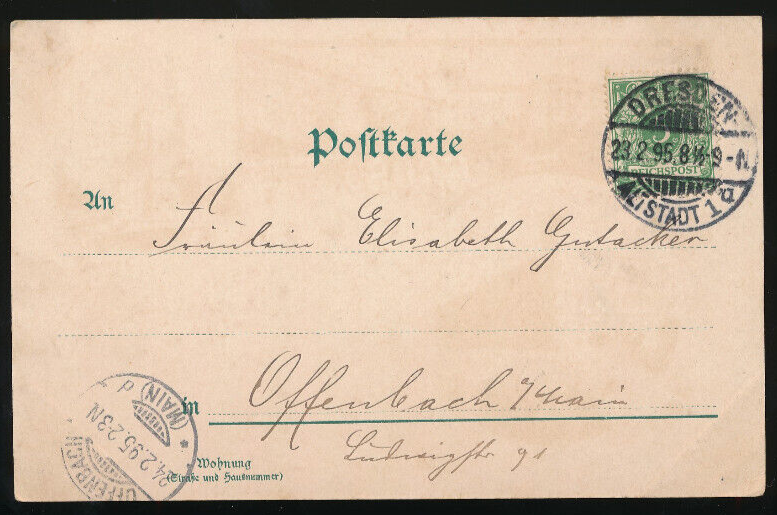 Postkarte
DRESDEN
23.2.95.8½-9-N.
ALTSTADT 1 d
REICHSPOST
An
Fräulein Elisabeth Gutacker
in Offenbach a/Main
Ludwigstr 91
Wohnung
(Straße und Hausnummer)
OFFENBACH
24.2.95.2-3N
(MAIN)